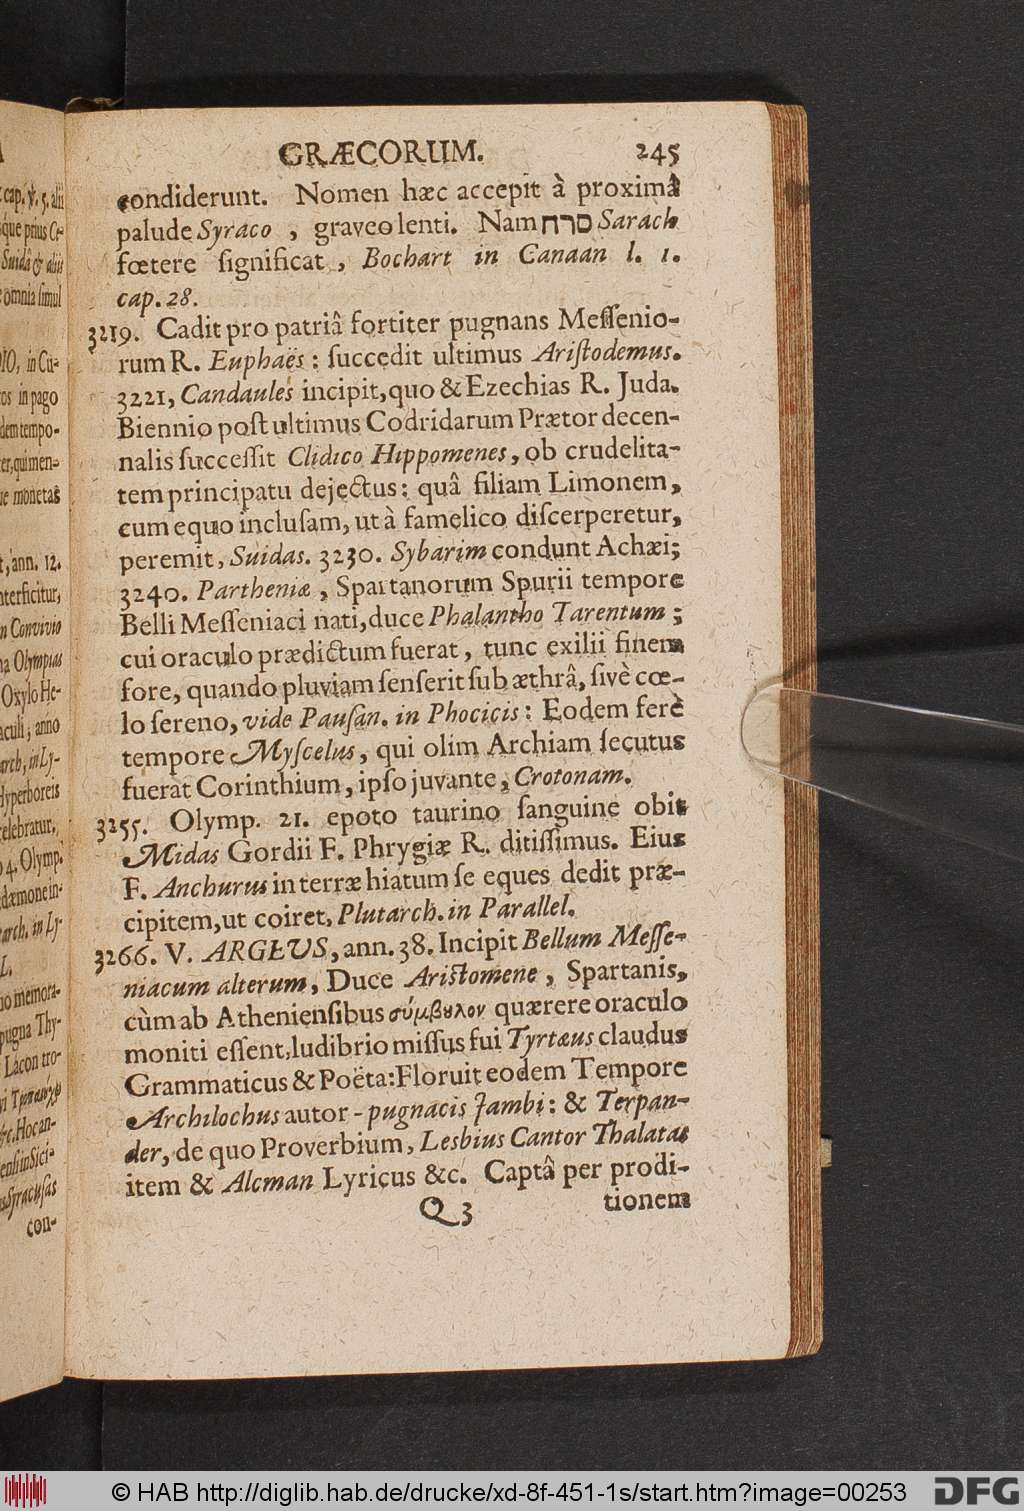 GRÆCORUM. 245
condiderunt. Nomen hæc accepit à proximâ
palude Syraco , graveolenti. Nam סרח Sarach
fœtere significat , Bochart in Canaan l. 1.
cap. 28.
3219. Cadit pro patriâ fortiter pugnans Messenio-
rum R. Euphaës : succedit ultimus Aristodemus.
3221, Candaules incipit, quo & Ezechias R. Juda.
Biennio post ultimus Codridarum Prætor decen-
nalis successit Clidico Hippomenes, ob crudelita-
tem principatu dejectus: quâ filiam Limonem,
cum equo inclusam, ut à famelico discerperetur,
peremit, Suidas. 3230. Sybarim condunt Achæi;
3240. Partheniæ , Spartanorum Spurii tempore
Belli Messeniaci nati, duce Phalantho Tarentum ;
cui oraculo prædictum fuerat, tunc exilii finem
fore, quando pluviam senserit sub æthrâ, sivè cœ-
lo sereno, vide Pausan. in Phocicis : Eodem ferè
tempore Myscelus, qui olim Archiam secutus
fuerat Corinthium, ipso juvante, Crotonam.
3255. Olymp. 21. epoto taurino sanguine obit
Midas Gordii F. Phrygiæ R. ditissimus. Eius
F. Anchurus in terræ hiatum se eques dedit præ-
cipitem, ut coiret, Plutarch. in Parallel.
3266. V. ARGÆUS, ann. 38. Incipit Bellum Messe-
niacum alterum, Duce Aristomene , Spartanis,
cùm ab Atheniensibus σύμβȣλον quærere oraculo
moniti essent, ludibrio missus fui Tyrtæus claudus
Grammaticus & Poëta: Floruit eodem Tempore
Archilochus autor - pugnacis Jambi : & Terpan-
der, de quo Proverbium, Lesbius Cantor Thalatas
item & Alcman Lyricus &c. Captâ per prodi-
Q 3 tionem
cap. v. 5. alii
que prius Ce-
Suidâ & aliis
omnia simul
DIO, in Cu-
in pago
dem tempo-
er, qui men-
monetas
ann. 12.
nterficitur,
n Convivio
na Olympias
Oxylo He-
aculi ; anno
arch. in Ly-
Hyperboreis
celebratur,
4. Olymp.
dæmone in-
arch. in Ly-
L.
memora-
pugna Thy-
Lacon tro-
&c. Hocan-
ensi in Sici-
Syracusas
con-
© HAB http://diglib.hab.de/drucke/xd-8f-451-1s/start.htm?image=00253
DFG